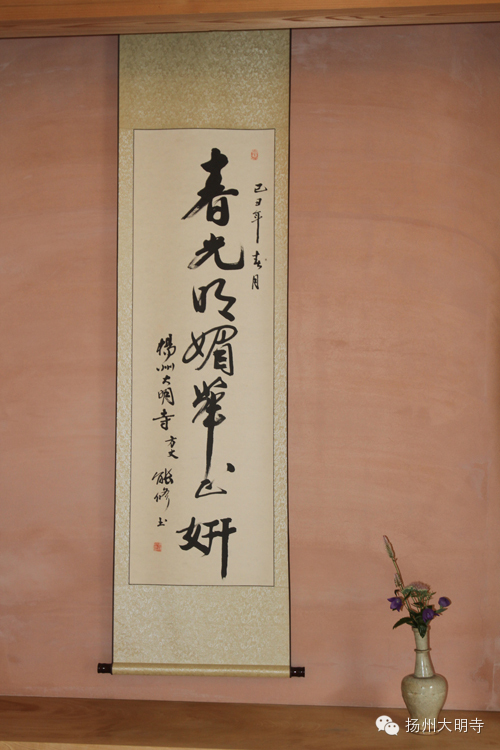 己丑年春月
春光明媚華妍
楊州大明寺方丈能修书
扬州大明寺